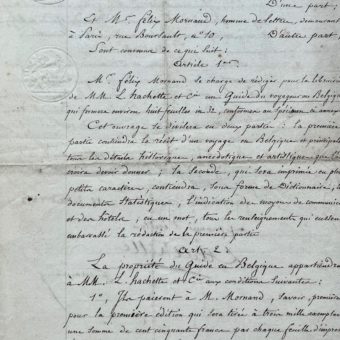 D'une part;
Et Mr. Félix Mornand, homme de lettres, demeurant
à Paris, rue Boursault, no 10; D'autre part;
Sont convenus de ce qui suit:
Article 1er.
Mr. Félix Mornand se charge de rédiger pour la librairie
de MM. L. Hachette et Cie un Guide du voyageur en Belgique
qui formera environ huit feuilles in 
Cet ouvrage se divisera en deux parties: la première
partie contiendra le récit d'un voyage en Belgique et principale
tous les détails historiques, anecdotiques et artistiques que
devoir donner; la seconde, qui sera imprimée en plus
petits caractères, contiendra, sous forme de Dictionnaire, les
documents statistiques, l'indication des moyens de communic
et des hôtels; en un mot, tous les renseignements qui eussent
embarrassé la rédaction de la première partie
Art. 2.
La propriété du Guide en Belgique appartiendra
à MM. L. Hachette et Cie aux conditions suivantes:
1o, Ils paieront à M. Mornand, savoir, première
pour la première édition qui sera tirée à trois mille exemplai
une somme de cent cinquante francs par chaque feuille d'impres